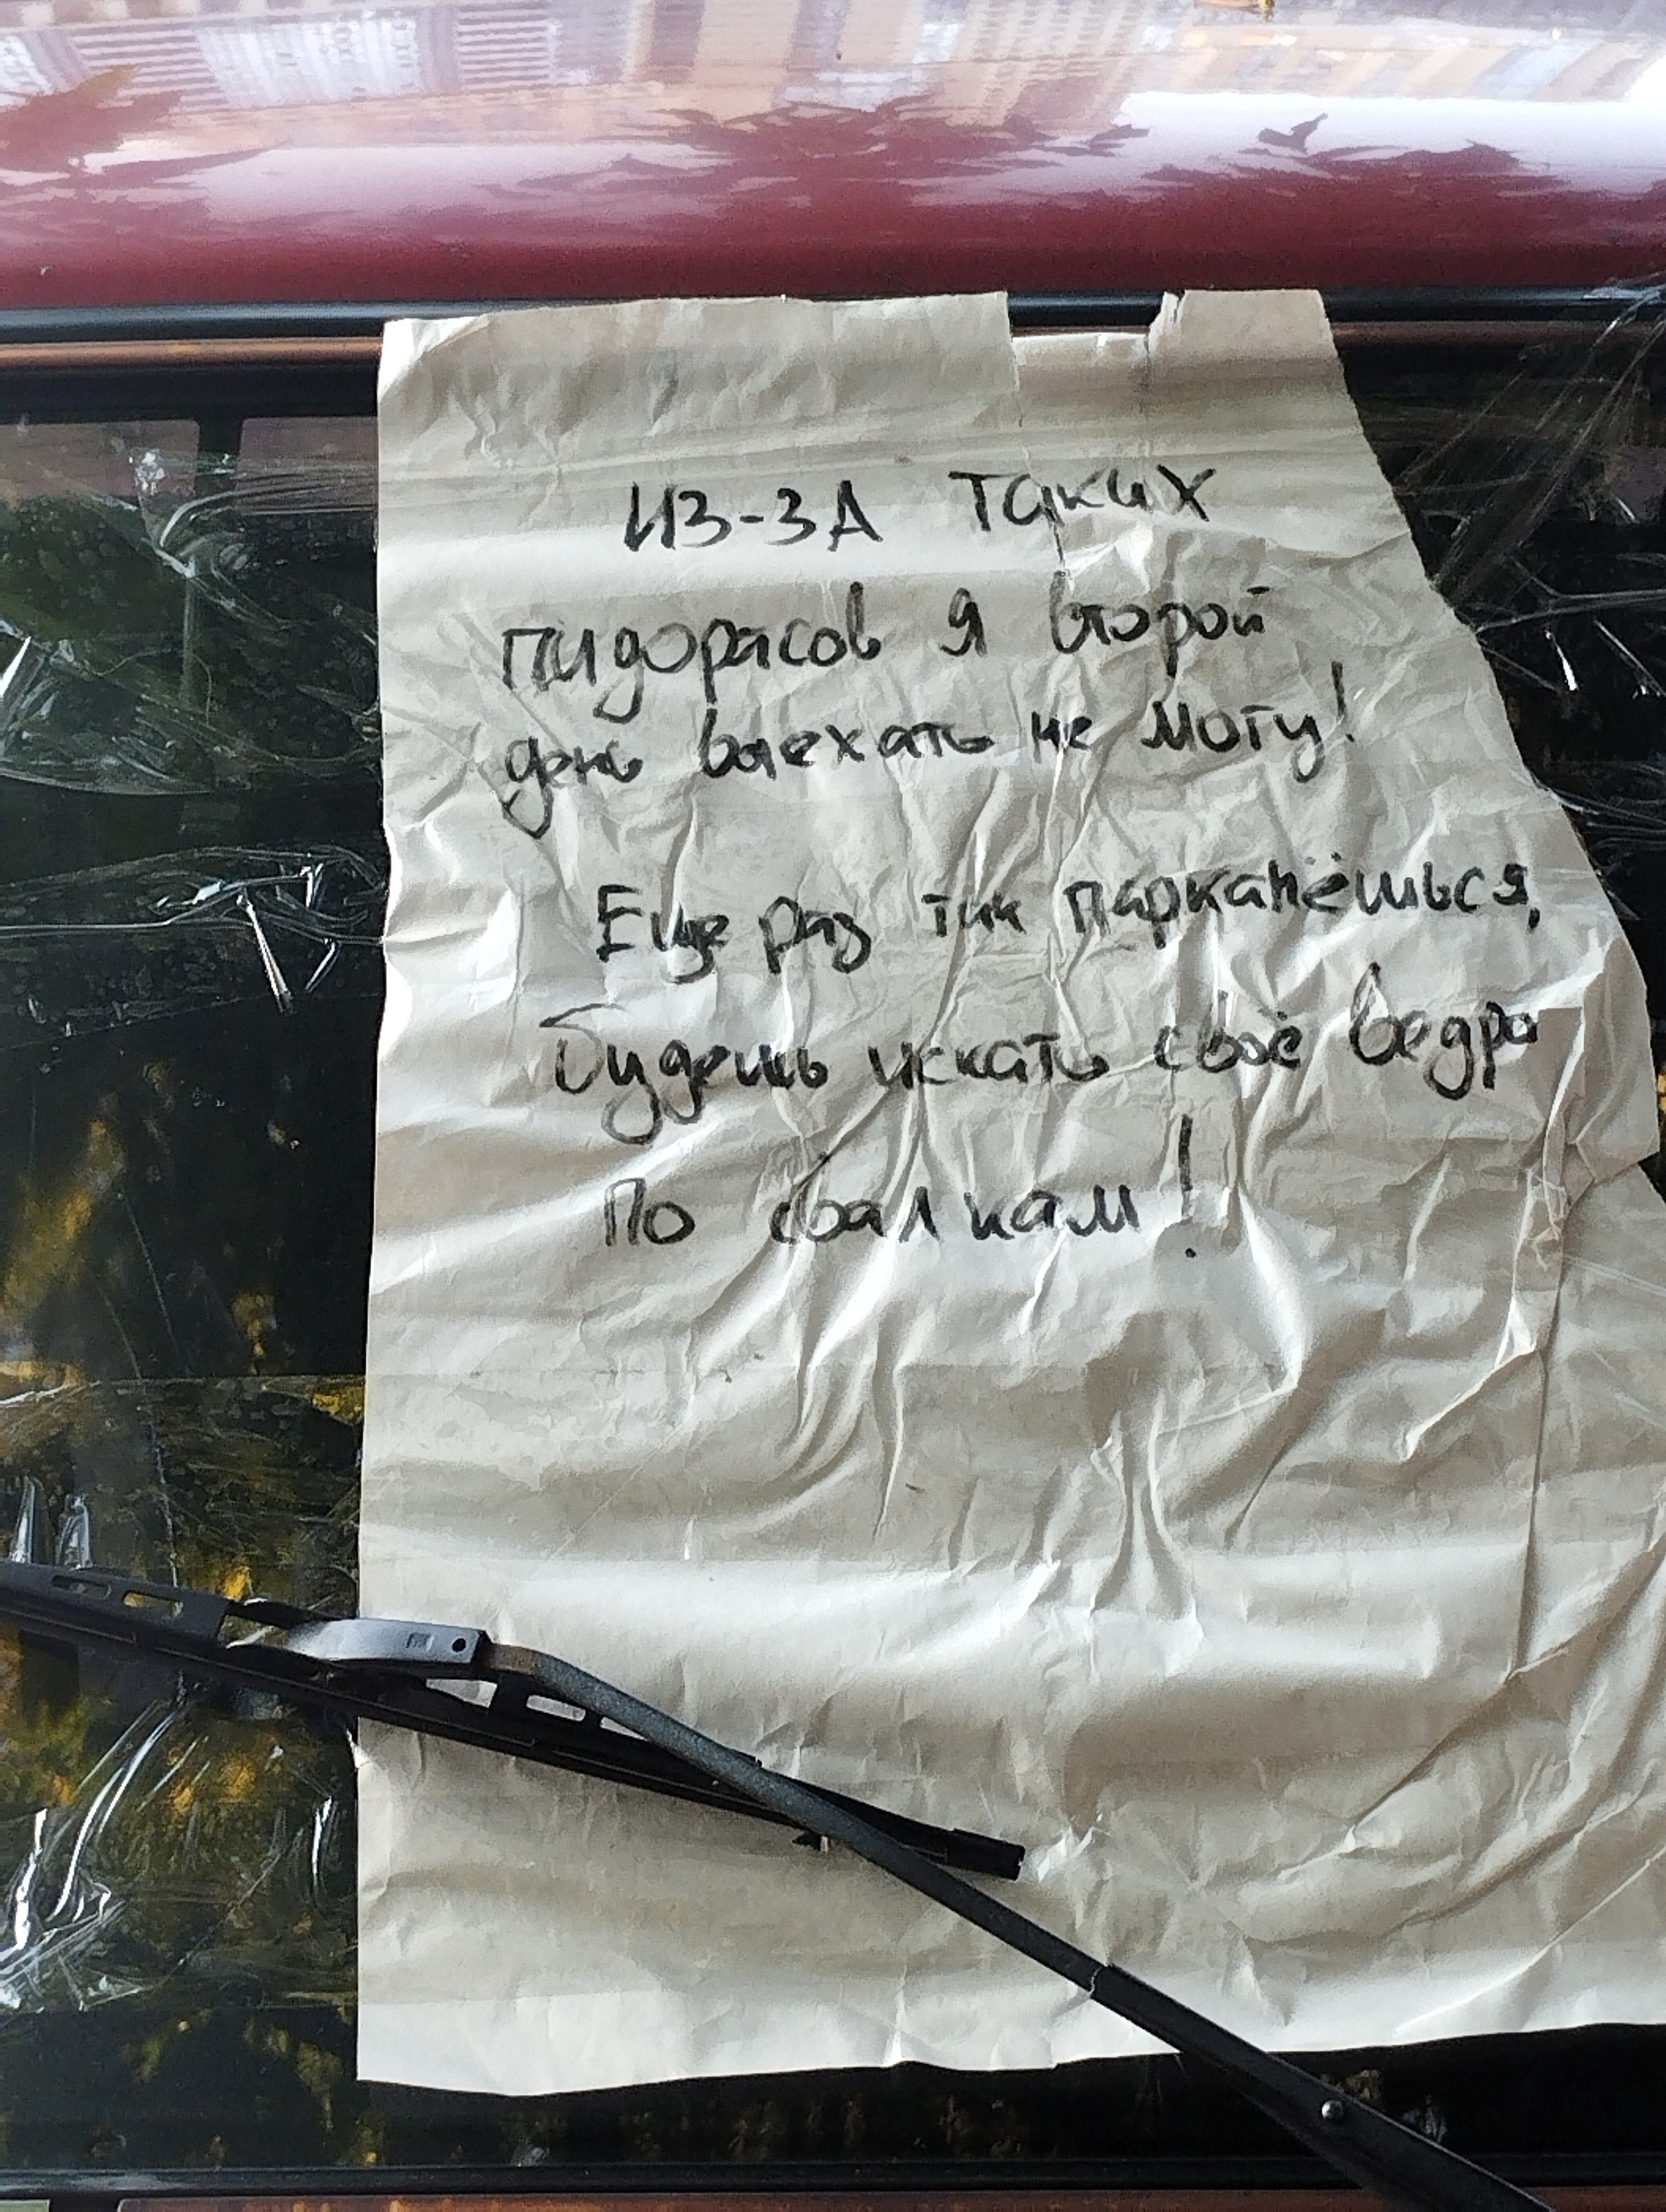 ИЗ-ЗА таких
пидорасов я второй
день выехать не могу!
Еще раз так парканёшься,
будешь искать своё ведро
по свалкам!